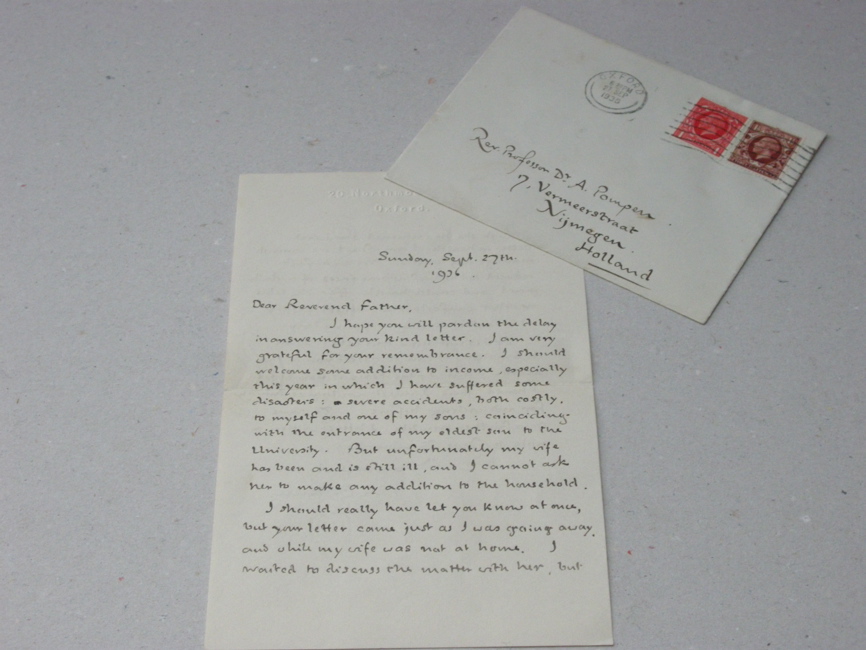 OXFORD
SEP
Rev. Professor Dr. A. Pompen
7, Vermeerstraat
Nijmegen.
Holland
Oxford.
Sunday, Sept. 27th.
1936.
Dear Reverend Father,
I hope you will pardon the delay
in answering your kind letter. I am very
grateful for your remembrance. I should
welcome some addition to income, especially
this year in which I have suffered some
disasters: severe accidents, both costly,
to myself and one of my sons: coinciding
with the entrance of my oldest son to the
University. But unfortunately my wife
has been and is still ill, and I cannot ask
her to make any addition to the household.
I should really have let you know at once,
but your letter came just as I was going away,
and while my wife was not at home. I
waited to discuss the matter with her, but